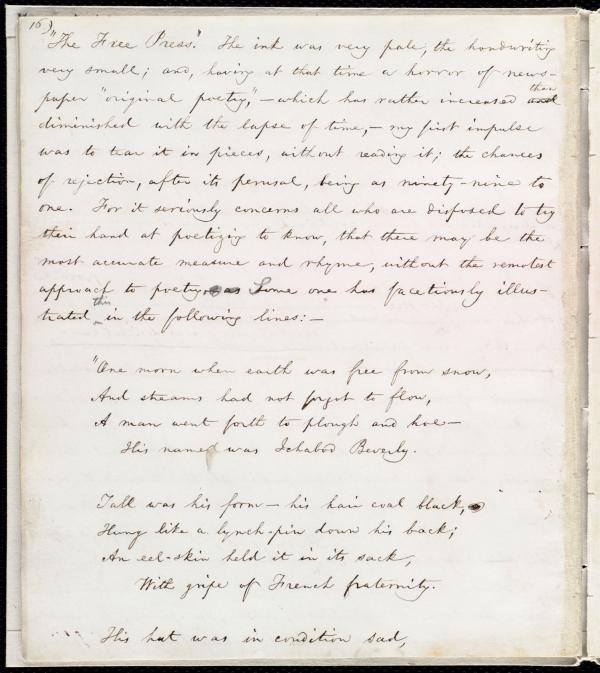 16)
"The Free Press." The ink was very pale, the handwriting
very small; and, having at that time a horror of news-
paper "original poetry,"—which has rather increased and than
diminished with the lapse of time,—my first impulse
was to tear it in pieces, without reading it; the chances
of rejection, after its perusal, being as ninety-nine to
one. For it seriously concerns all who are disposed to try
their hand at poetizing to know, that there may be the
most accurate measure and rhyme, without the remotest
approach to poetry, as Some one has facetiously illus-
trated this in the following lines:—
"One morn when earth was free from snow,
And streams had not forgot to flow,
A man went forth to plough and hoe—
His named was Ichabod Beverly.
Tall was his form—his hair coal black,
Hung like a lynch-pin down his back;
An eel-skin held it in its sack,
With gripe of French fraternity.
His hat was in condition sad,